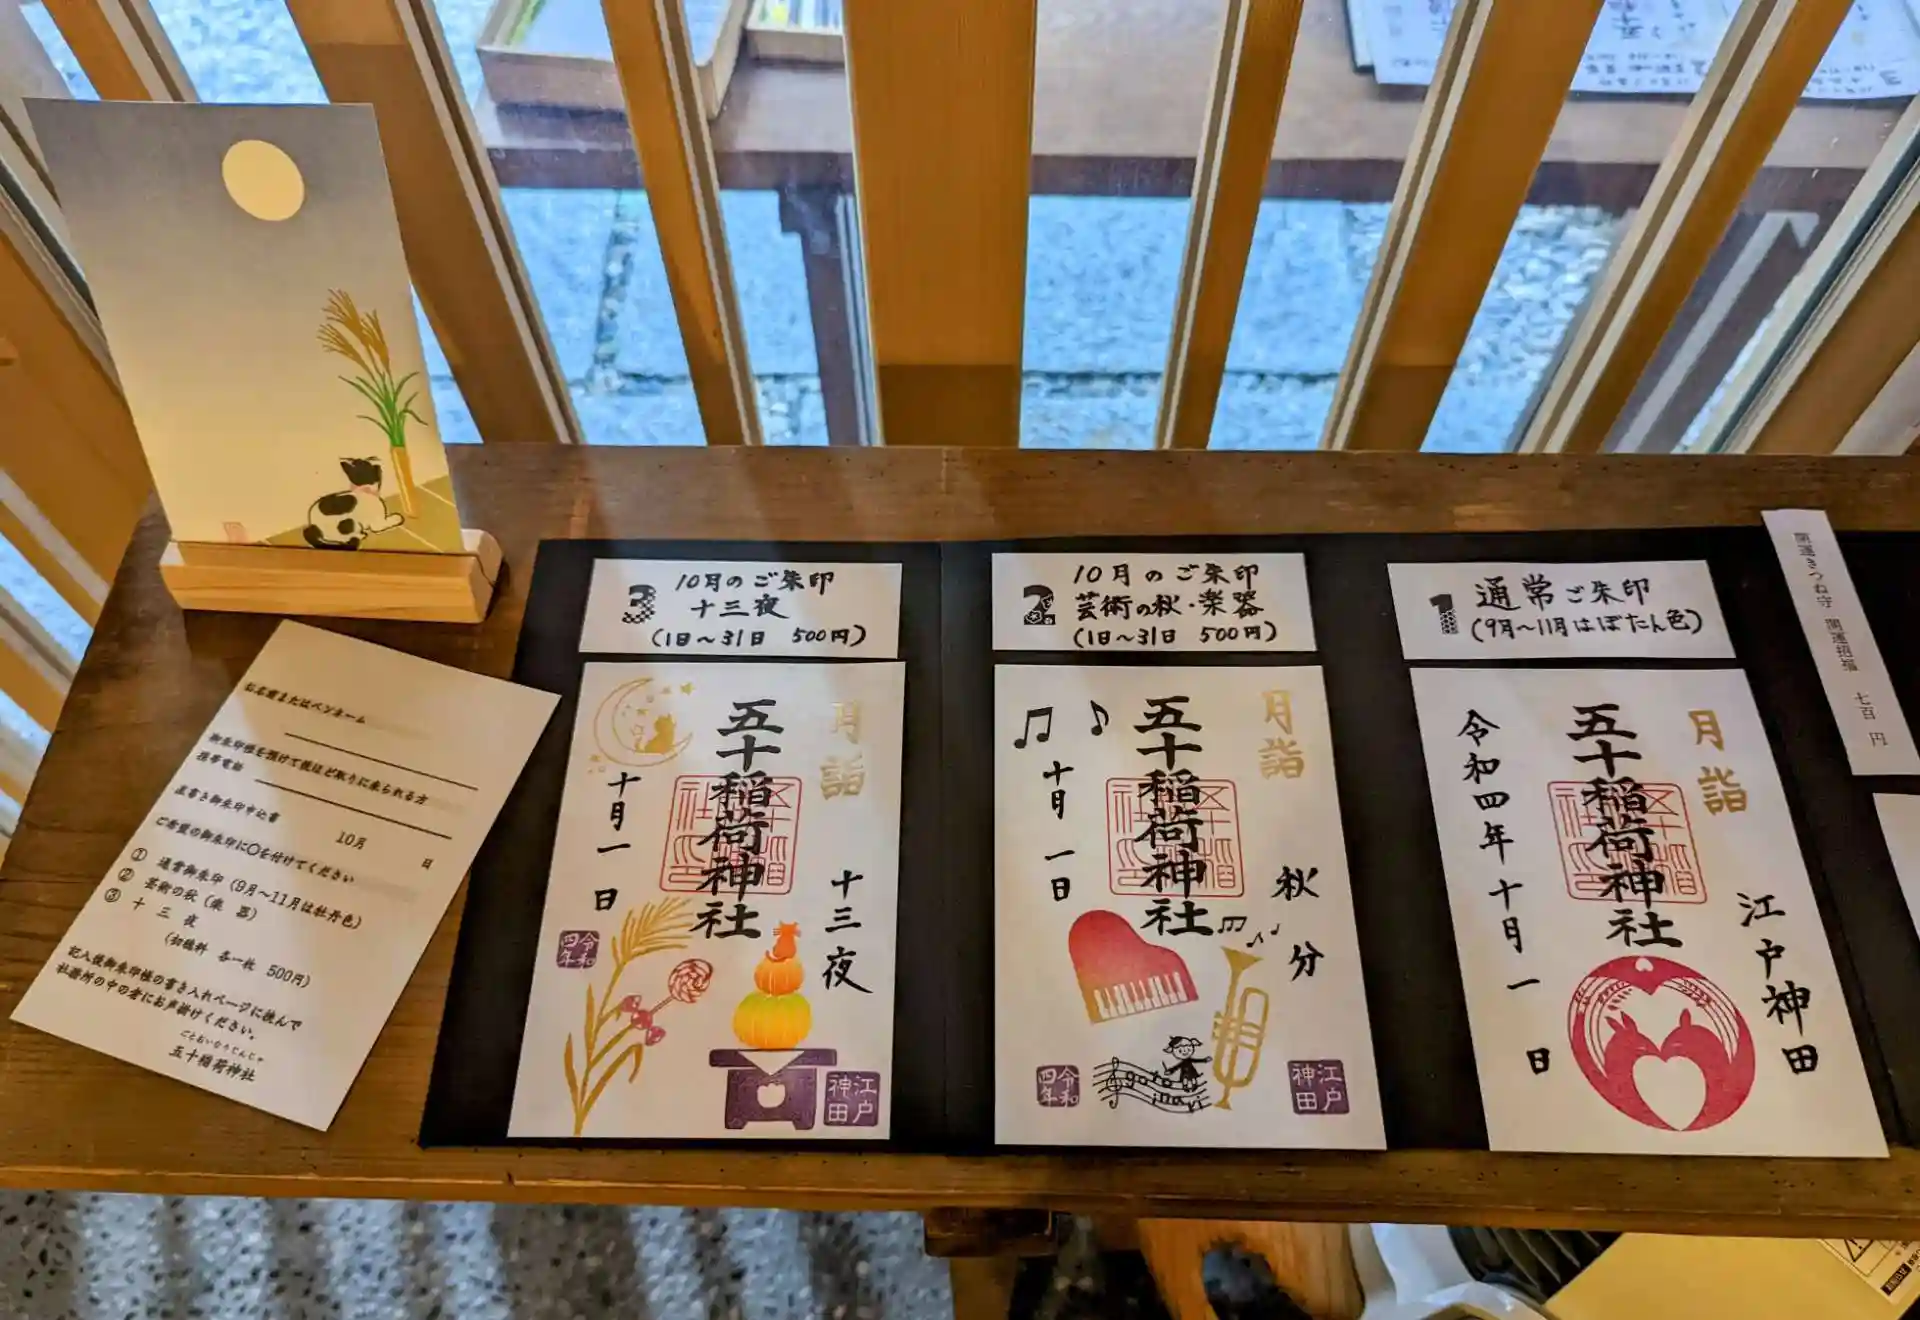 お名前またはペンネーム
御朱印帳を預けて後ほど取りに来られる方
携帯電話
直書き御朱印申込書
10月 日
ご希望の御朱印に〇を付けてください
① 通常御朱印(9月～11月は牡丹色)
② 芸術の秋(楽 器)
③ 十 三 夜
(初穂料 各一枚 500円)
記入後御朱印帳の書き入れページに挟んで
社務所の中の者にお声掛けください。
ごとおいなりじんじゃ
五十稲荷神社
3
10月のご朱印
十三夜
(1日～31日 500円)
月詣
五十稲荷神社
十月一日
十三夜
令和四年
江戸神田
2
10月のご朱印
芸術の秋・楽器
(1日～31日 500円)
月詣
五十稲荷神社
十月一日
秋分
goto inari
令和四年
江戸神田
1
通常ご朱印
(9月～11月はぼたん色)
月詣
五十稲荷神社
令和四年十月一日
江戸神田
開運きつね守 開運招福 七百円